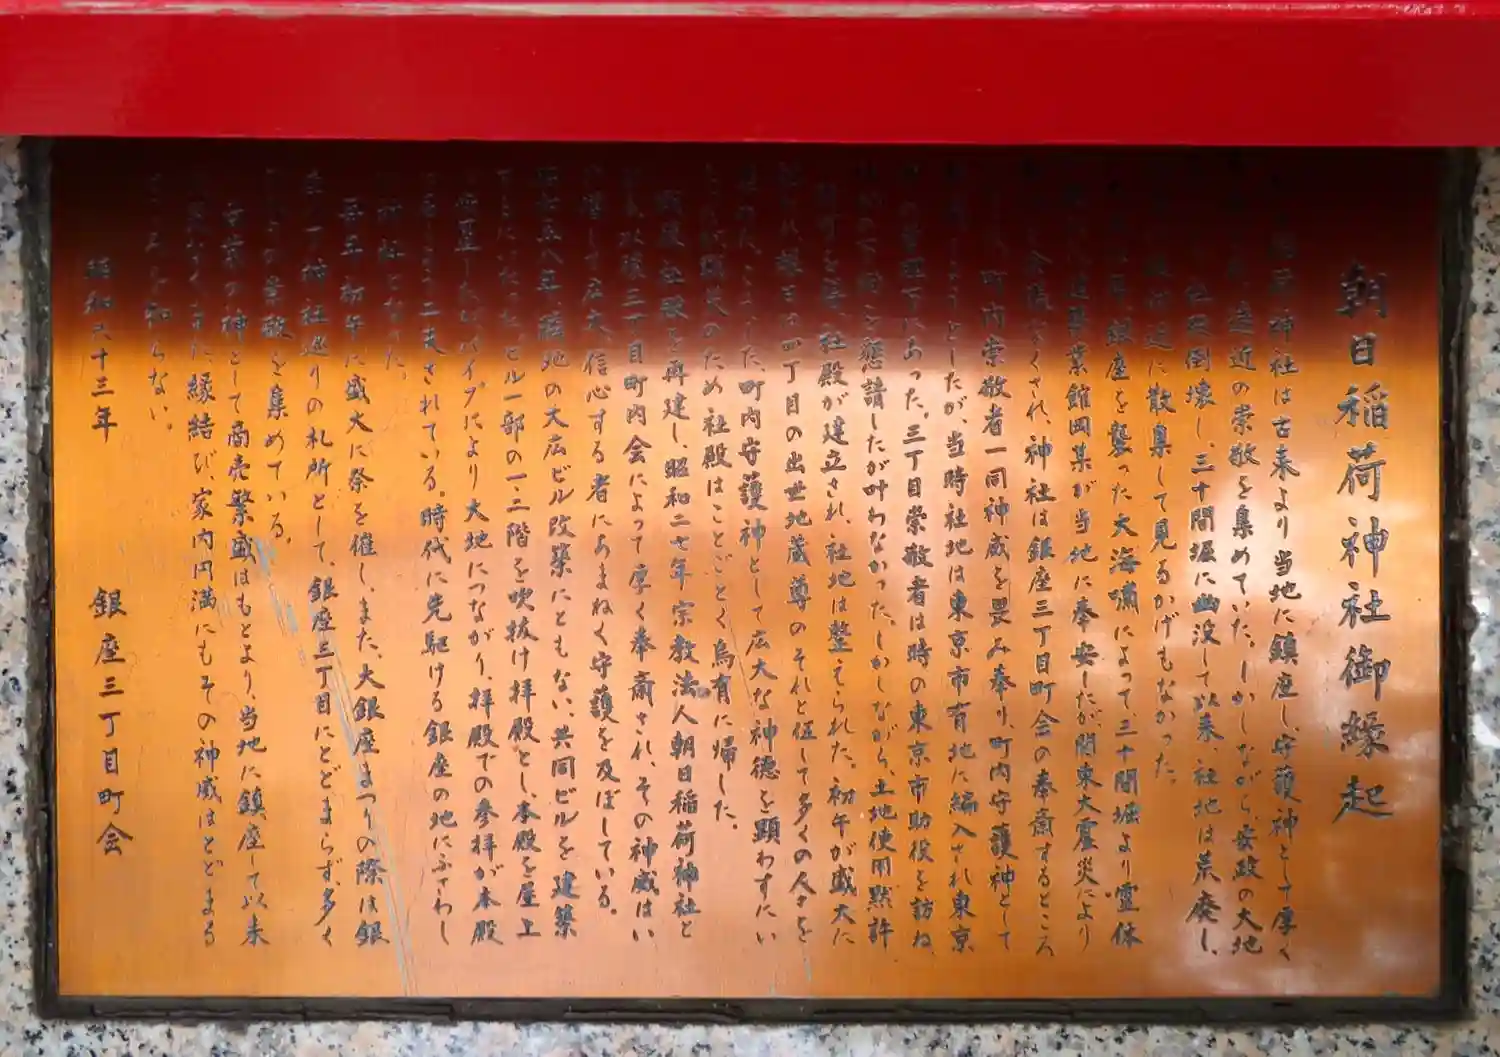 朝日稲荷神社御縁起
稲荷神社は古来より当地に鎮座し、守護神として厚く
遠近の崇敬を集めていた。しかしながら、安政の大地
社殿倒壊し、三十間堀に幽没して以来、社地は荒廃し、
附近に散集して見るかげもなかった。
銀座を襲った大海嘯によって、三十間堀より霊体
業館岡某が当地に奉安したが、関東大震災により
なくされ、神社は銀座三丁目町会の奉斎するところ
町内崇敬者一同神威を畏み奉り、町内守護神として
しようとしたが、当時社地は東京市有地に編入され東京
理下にあった。三丁目崇敬者は時の東京市助役を訪ね、
下附を懇請したが叶わなかった。しかしながら、土地使用黙許
を得、社殿が建立され、社地は整えられた。初午が盛大に
縁日は四丁目の出世地蔵尊のそれと伍して多くの人々を
た。町内守護神として広大な神徳を顕わすにい
が戦災のため社殿はことごとく烏有に帰した。
戦後社殿を再建し、昭和二七年宗教法人朝日稲荷神社と
以後三丁目町内会によって厚く奉斎され、その神威はい
して広大、信心する者にあまねく守護を及ぼしている。
五八年、隣地の大広ビル改築にともない、共同ビルを建築
ビル一部の一、二階を吹抜け拝殿とし、本殿を屋上
パイプにより大地につながり、拝殿での参拝が本殿
夫されている。時代に先駆ける銀座の地にふさわし
神社となった。
毎年初午に盛大に祭を催し、また、大銀座まつりの際は銀
座八丁神社巡りの札所として、銀座三丁目にとどまらず、多く
崇敬を集めている。
の神として商売繁盛はもとより、当地に鎮座して以来
また、縁結び、家内円満にもその神威はとどまる
ところを知らない。
昭和六十三年　銀座三丁目町会